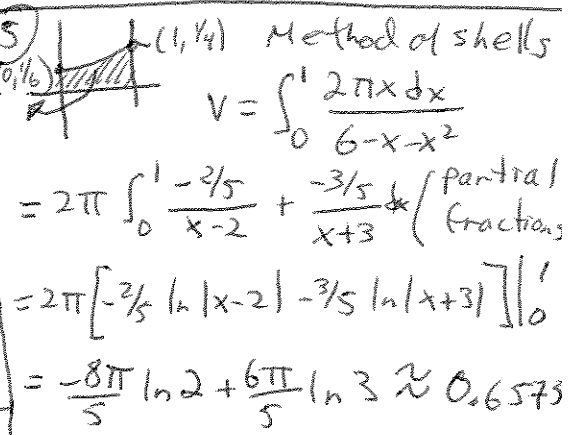 5
(1, 1/4) Method of shells
(0, 1/6)
V = ∫₀¹ 2πx dx / (6-x-x²)
= 2π ∫₀¹ (-2/5)/(x-2) + (-3/5)/(x+3) dx (partial fractions
= 2π[-2/5 ln|x-2| - 3/5 ln|x+3|] |₀¹
= -8π/5 ln 2 + 6π/5 ln 3 ≈ 0.6573